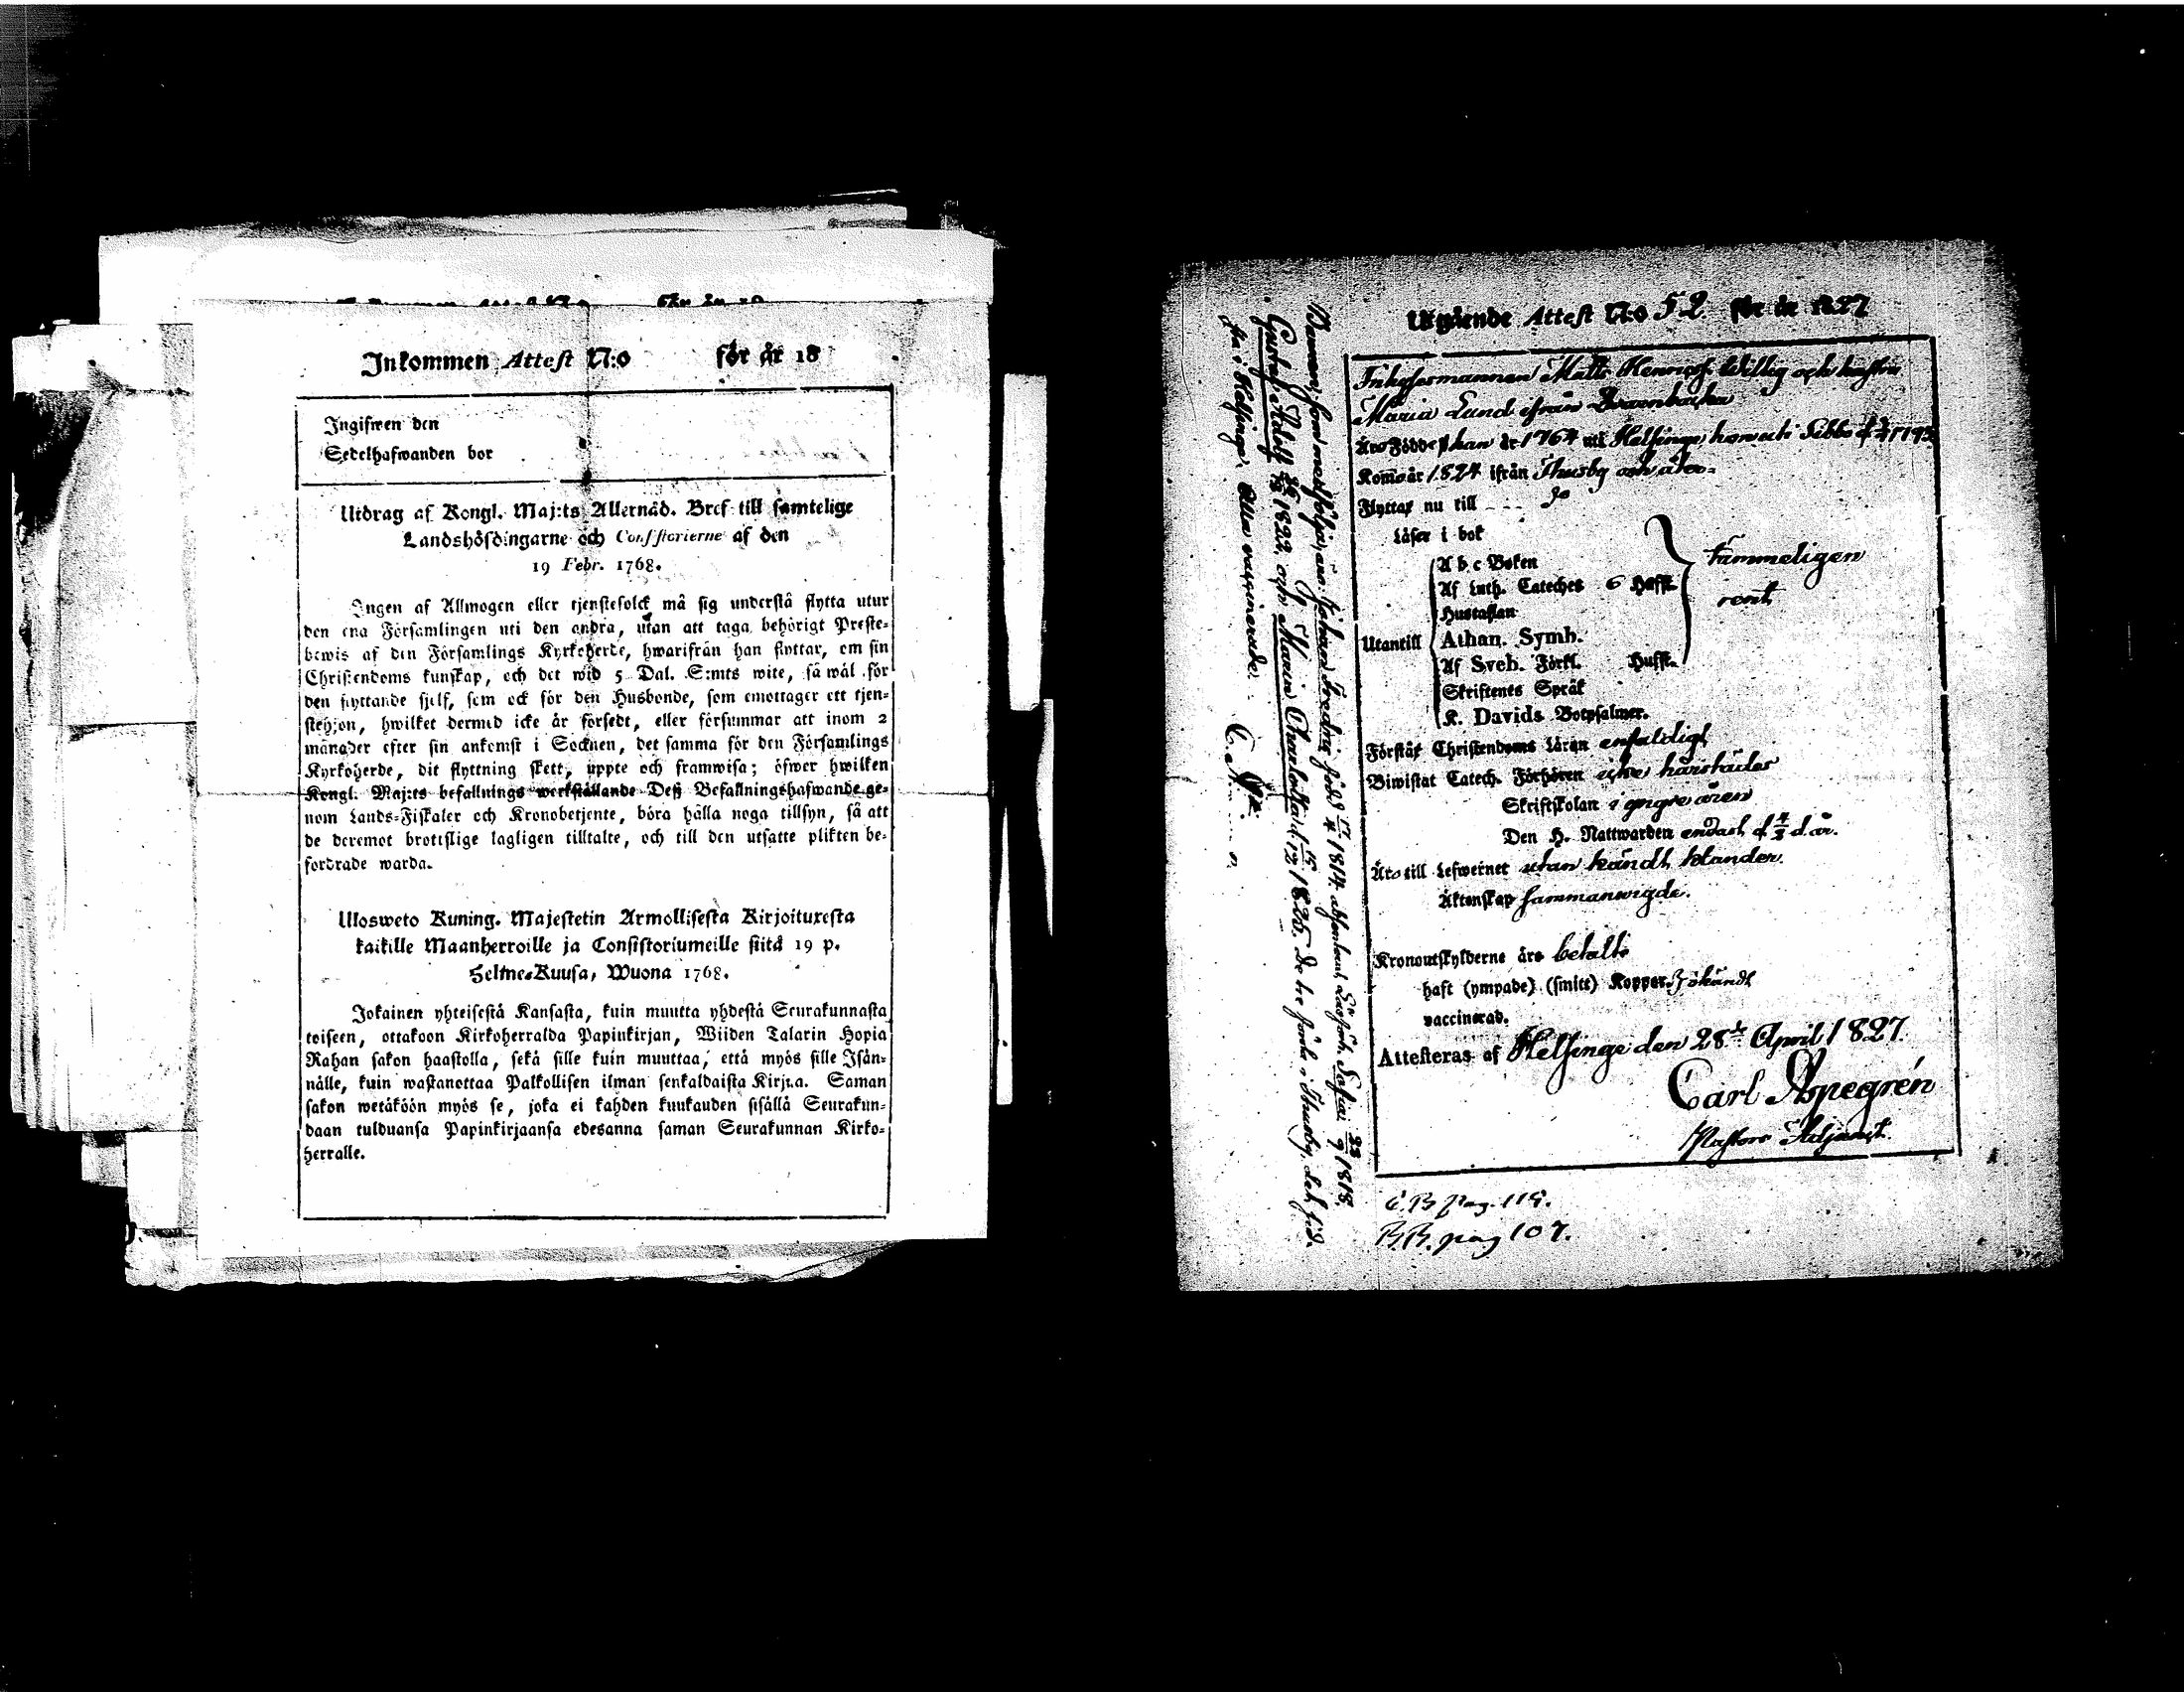 Inkommen Attest N:o för år 18
Ingifwen den
Sedelhafwanden bor
Utdrag af Kongl. Maj:ts Allernåd. Bref till samtelige
Landshöfdingarne och Consistorierne af den
19 Febr. 1768.
Ingen af Allmogen eller tjenstefolck må sig understå flytta utur
den ena Församlingen uti den andra, utan att taga behörigt Preste-
bewis af den Församlings Kyrkoherde, hwarifrån han flyttar, om sin
Christendoms kunskap, och det wid 5 Dal. S:mts wite, så wäl för
den flyttande sjelf, som ock för den Husbonde, som emottager ett tjen-
stehjon, hwilket dermed icke är försedt, eller försummar att inom 2
månader efter sin ankomst i Socknen, det samma för den Församlings
Kyrkoherde, dit flyttning skett, uppte och framwisa; öfwer hwilken
Kongl. Maj:ts befallnings werkställande Deß Befallningshafwande ge-
nom Lands-Fiskaler och Kronobetjente, böra hålla noga tillsyn, så att
de deremot brottslige lagligen tilltalte, och till den utsatte plikten be-
fordrade warda.
Ulosweto Kuning. Majestetin Armollisesta Kirjoituxesta
kaikille Maanherroille ja Consistoriumeille siitä 19 p.
Helme-Kuusa, Wuona 1768.
Jokainen yhteisestä Kansasta, kuin muutta yhdestä Seurakunnasta
toiseen, ottakoon Kirkoherralda Papinkirjan, Wiiden Talarin Hopia
Rahan sakon haastolla, sekä sille kuin muuttaa, että myös sille Isän-
nälle, kuin wastanottaa Palkollisen ilman senkaldaista Kirjaa. Saman
sakon wetäköön myös se, joka ei kahden kuukauden sisällä Seurakun-
daan tulduansa Papinkirjaansa edesanna saman Seurakunnan Kirko-
herralle.
Utgående Attest N:o 52 för år 1827
Inhysesmannen Matts Henricss. Willig och hustru
Maria Lund ifrån
Äro Födde han år 1764 uti Helsinge, hon uti Sibbo d. 1793
Kommo år 1824 ifrån Thusby och åter-
Flyttar nu till - - - do
Läser i bok
Utantill
A b c Boken
Af Luth. Cateches 6 Hufst.
Hustaflan
Athan. Symb.
Af Sveb. Förkl. Hufst.
Skriftenes Språk
K. Davids Botpsalmer.
tämmeligen
rent
Förstår Christendoms Läran enfaldigt
Biwistat Catech. Förhören icke härstädes
Skriftskolan i yngre åren
Den H. Nattwarden endast d. 4/3 d. år.
Äro till Lefwernet utan kändt klander.
Äktenskap sammanwigde.
Kronoutskylderne äro betalte
haft (ympade) (smitt) Koppor okändt
vaccinerad.
Attesteras af Helsinge den 28de April 1827.
Carl Aspegrén
Pastors Adjunct.
C.B. pag. 119.
B.B. pag 107.
Barnen, som medfölja, äro: Johan Fredric, född 17/4 1814. Sofia 23/9 1818,
Gustaf Adolf 1822, och Maria Charlotta d. 15/12 1825. De tre i Thusby, det
sta i Helsinge. Alla vaccinerade.